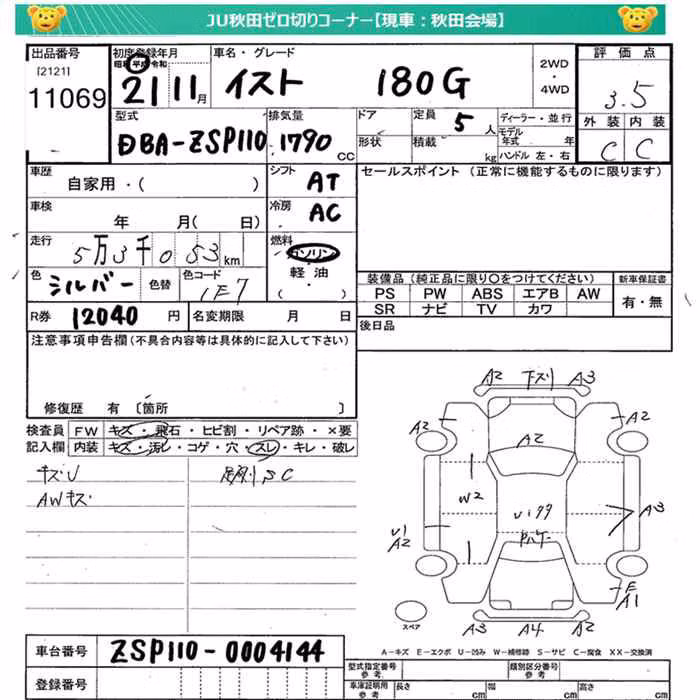 JU秋田ゼロ切りコーナー【現車：秋田会場】
出品番号 初度登録年月 車名・グレード 評価点
[2121] 昭和 平成 令和 2WD ・ 4WD
11069 21 11月 イスト 180G 3.5
型式 排気量 ドア 定員 5人 ディーラー・並行 外装 内装
DBA-ZSP110 1790 CC 形状 積載 kg モデル年式 年 ハンドル 左・右 C C
車歴 シフト AT セールスポイント (正常に機能するものに限ります)
自家用・( )
車検 冷房 AC
年 月( 日)
走行 5万3千053km 燃料 ガソリン
軽・油
( ・ )
色 シルバー 色替 色コード 1E7 装備品 (純正品に限り○をつけてください) 新車保証書
PS PW ABS エアB AW 有・無
SR ナビ TV カワ
R券 12040 円 名変期限 月 日 後日品
注意事項申告欄(不具合内容等は具体的に記入して下さい)
修復歴 有〔箇所 〕
検査員記入欄 FW キズ・飛石・ヒビ割・リペア跡・×要
内装 キズ・汚レ・コゲ・穴・スレ・キレ・破レ
キズU SC
AWキズ
A2 下ズリ A3
A2 A2
A2
W2 A3
U1 A2
E A1
A3 A4 A2
スペア
A－キズ E－エクボ U－凹み W－補修跡 S－サビ C－腐食 XX－交換済
車台番号 ZSP110-0004144
登録番号
型式指定番号 参考 類別区分番号 参考
車庫証明用 参考 長さ cm 幅 cm 高さ cm